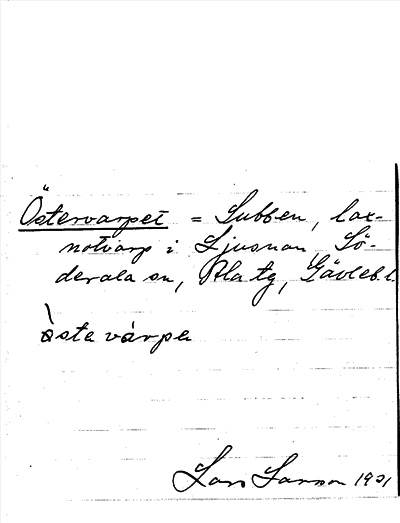 Östervarpet = Gubben, lax-
notvarp i Ljusnan, Sö-
derala sn, Ala tg, Gävleb. l.
östa varpe
Lars Larsson 1921